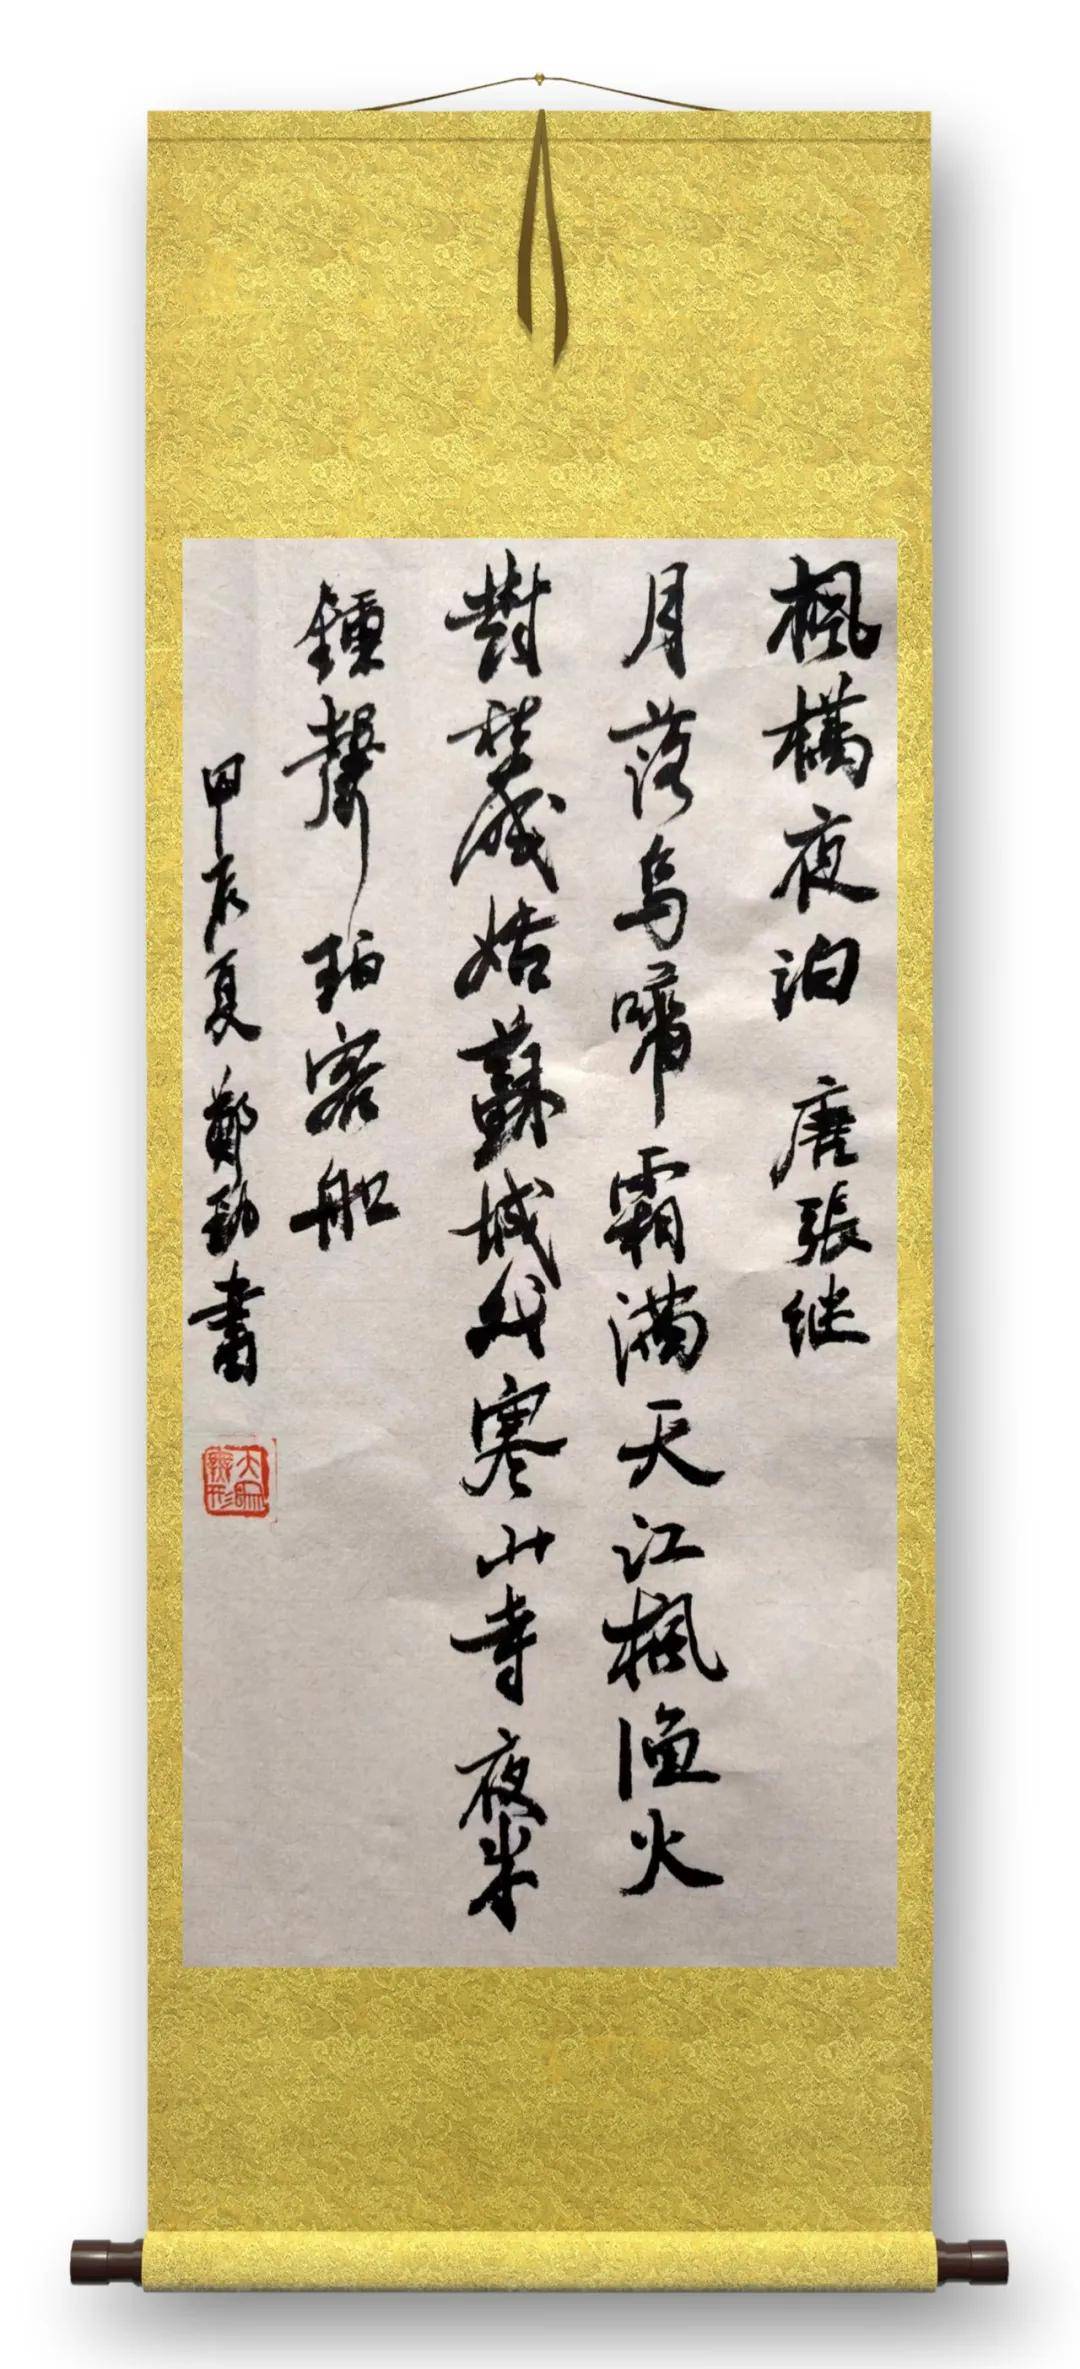 楓橋夜泊 唐張继
月落烏啼霜满天江楓渔火
對愁眠姑蘇城外寒山寺夜半
鍾聲到客船
甲辰夏鄭勁書
大象無形